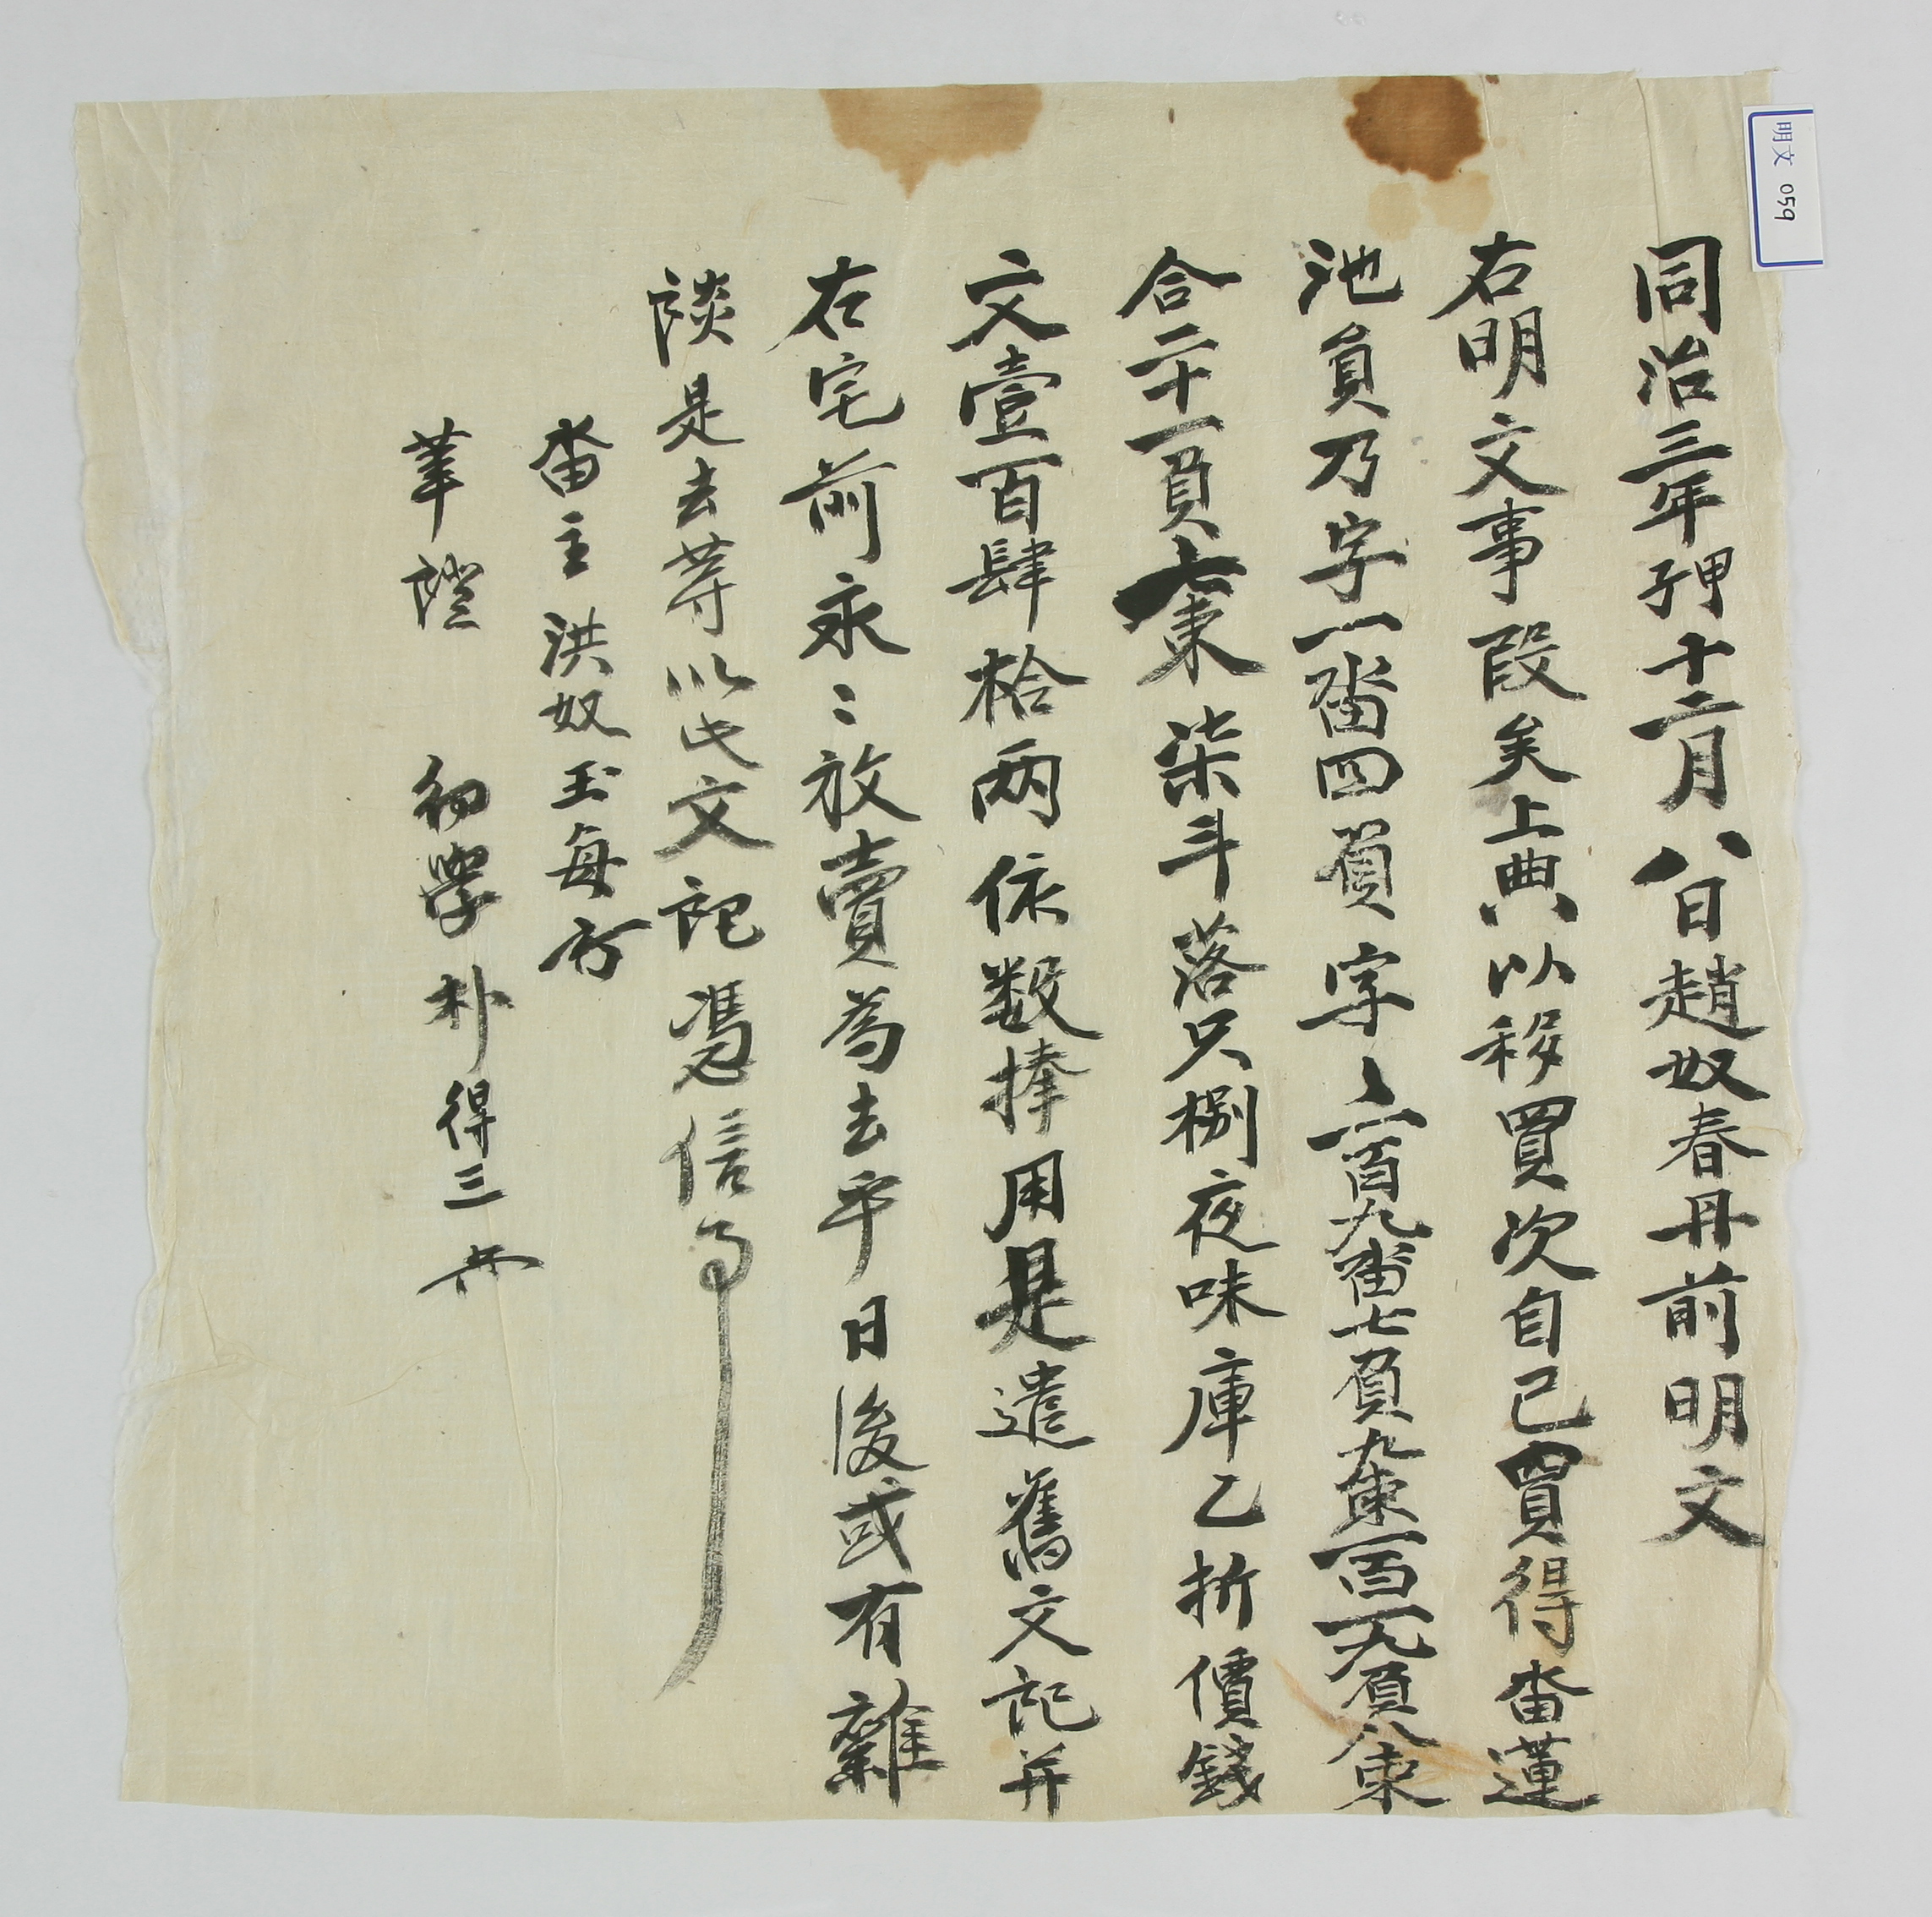 明文 059
同治三年甲子十二月八日趙奴春丹前明文
右明文事段矣上典以移買次自己買得畓蓮
池員乃字一畓四負字百九畓七負九束百一九負八束
合二十一負七束柒斗落只捌夜味庫乙折價錢
文壹百肆拾両依数捧用是遣舊文記并
右宅前永〻放賣爲去乎日後或有雜
談是去等以此文記憑信事
畓主洪奴玉每
筆證 幼學朴得三